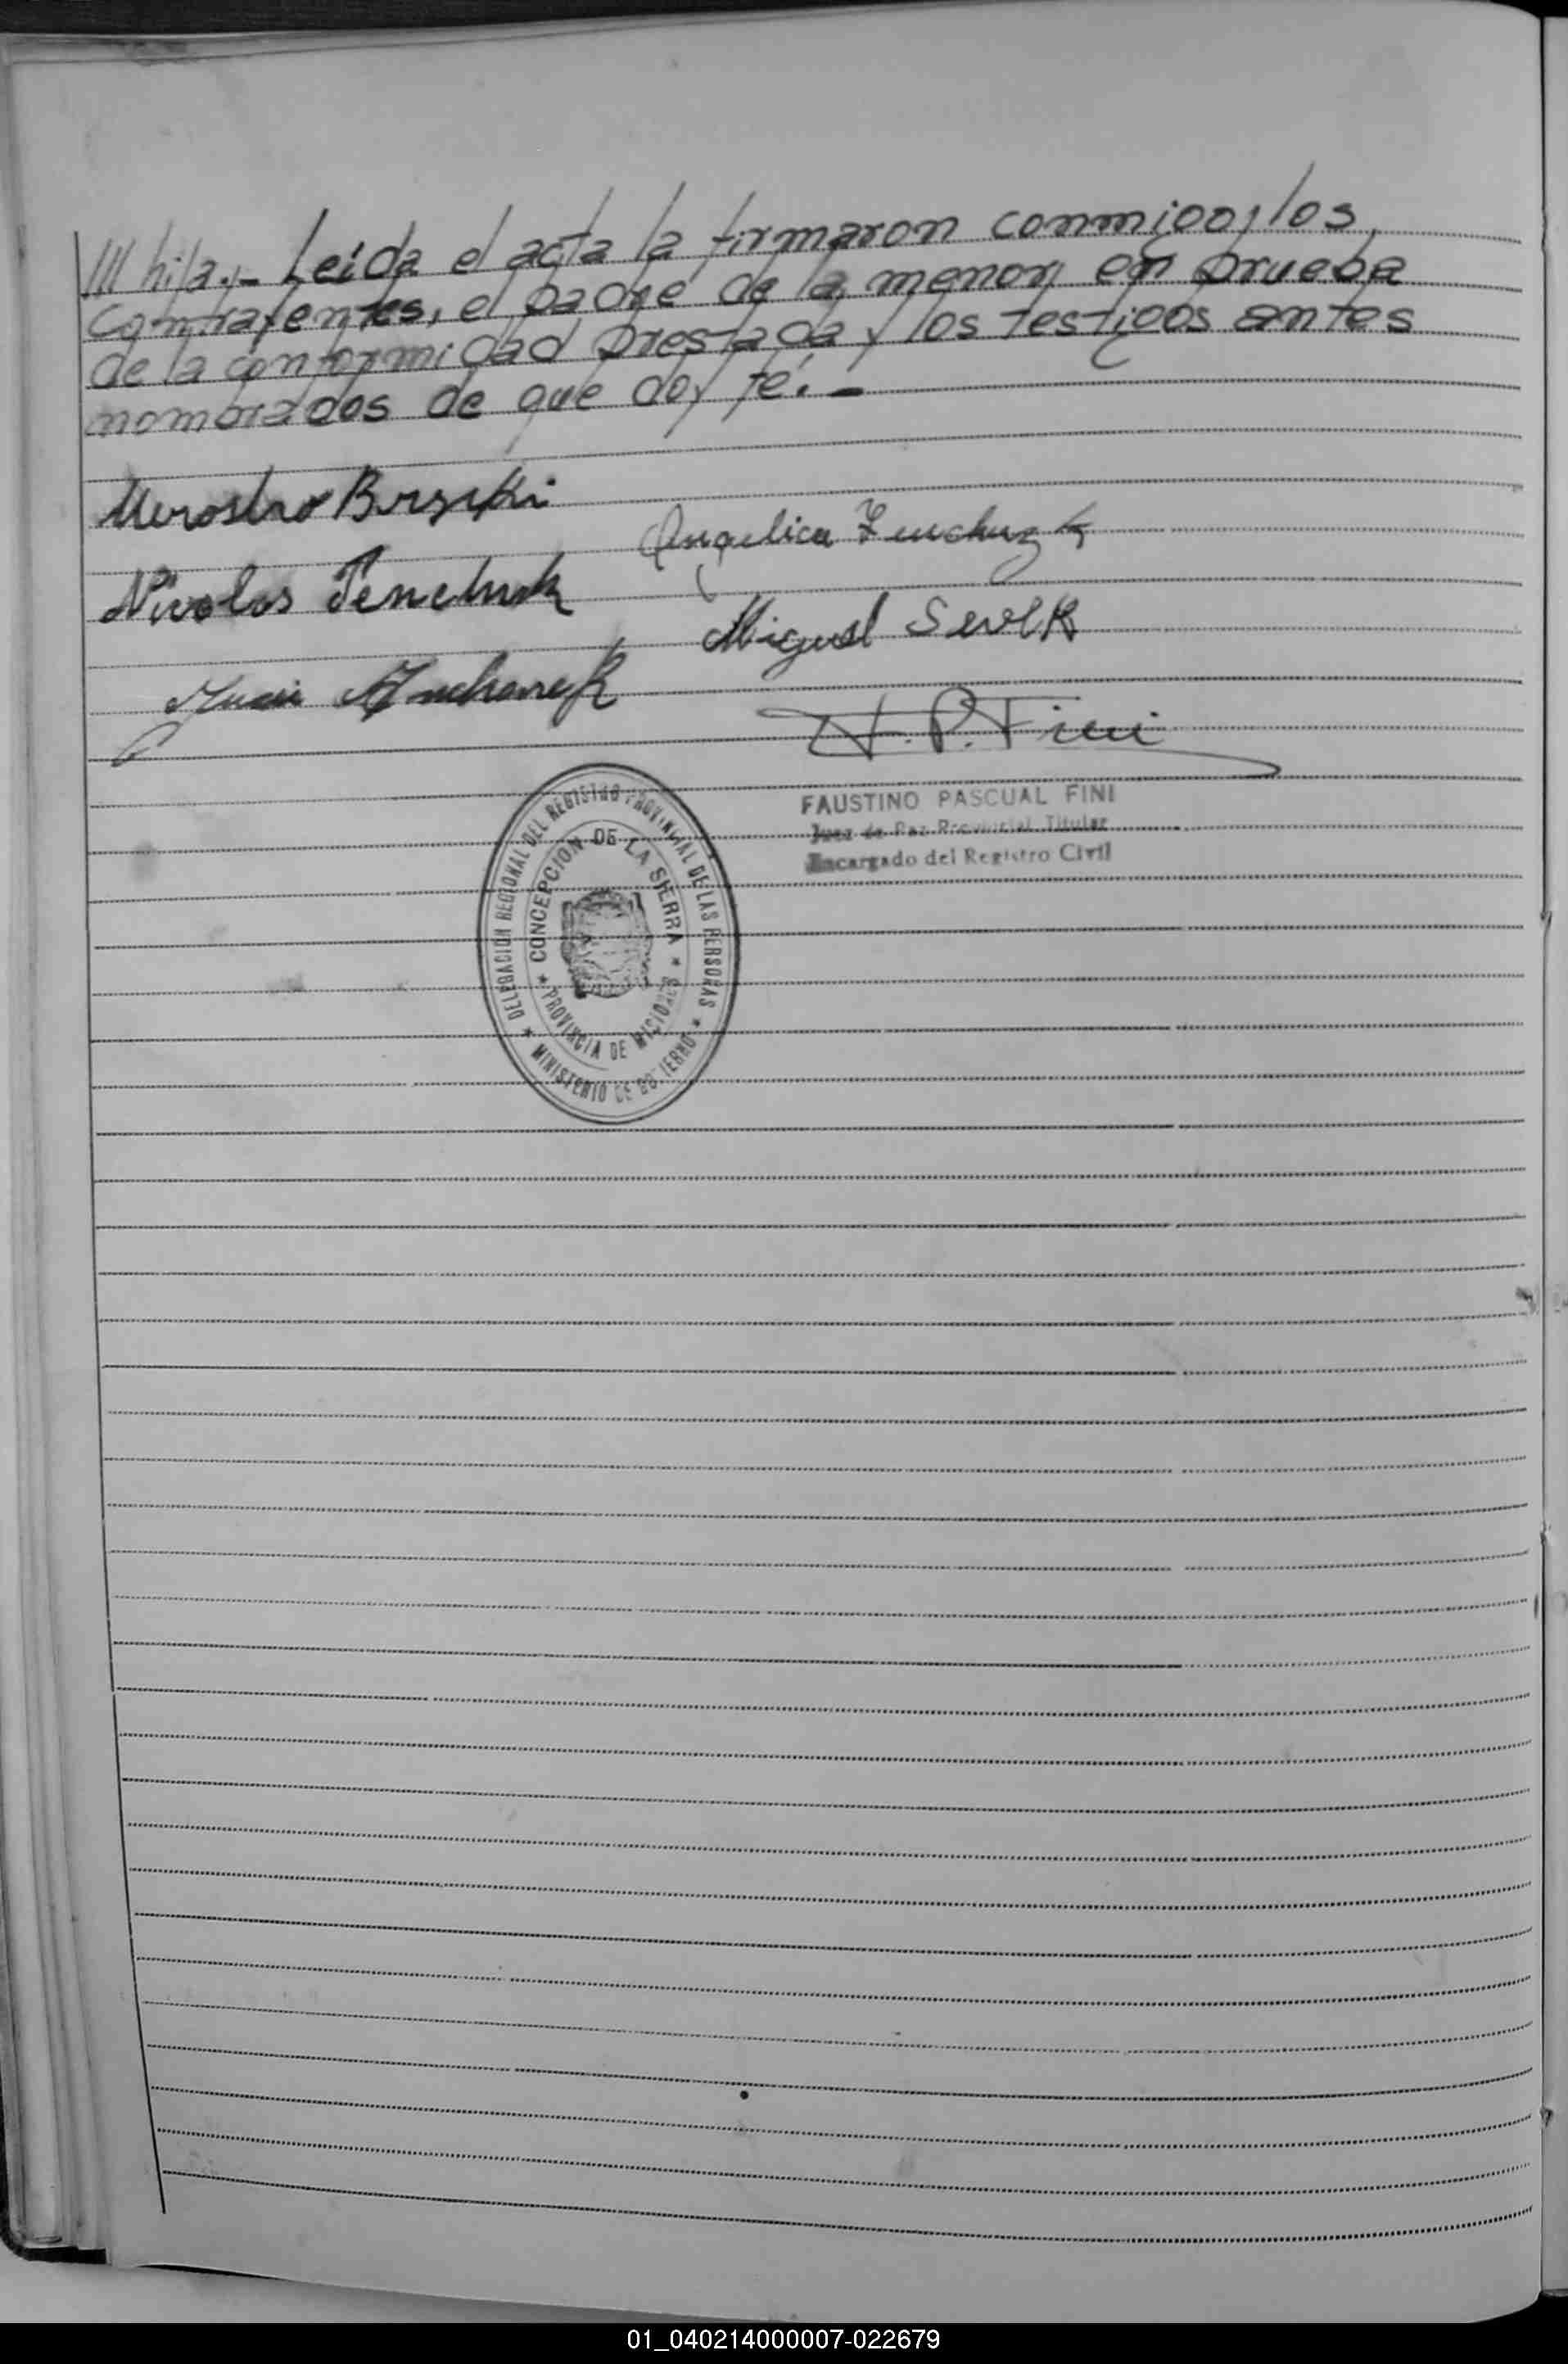 /// hija.- Leída el acta la firmaron conmigo, los
contrayentes, el padre de la menor, en prueba
de la conformidad prestada y los testigos antes
nombrados de que doy fé.-
Angelica
Nicolas
Miguel
F. P. Fini
FAUSTINO PASCUAL FINI
Juez de Paz Provincial Titular
Encargado del Registro Civil
DELEGACION REGIONAL DEL REGISTRO PROVINCIAL DE LAS PERSONAS
★ MINISTERIO DE GOBIERNO ★
CONCEPCION DE LA SIERRA
★ PROVINCIA DE MISIONES ★
01_040214000007-022679